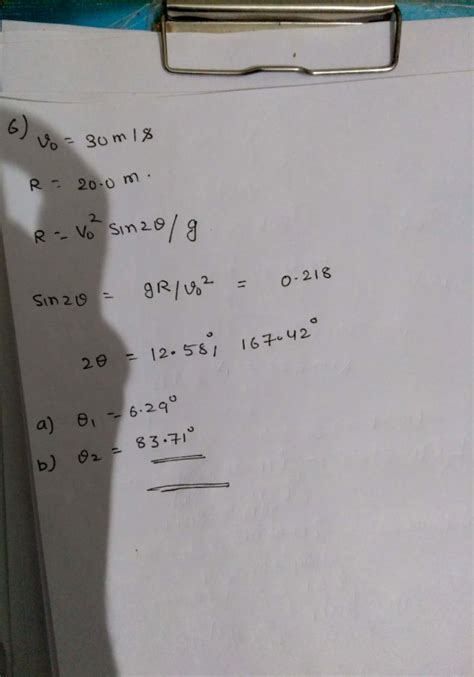 6) V₀ = 30 m/s
R = 20.0 m.
R = V₀² Sin2θ/g
Sin2θ = gR/V₀² = 0.218
2θ = 12.58°, 167.42°
a) θ₁ = 6.29°
b) θ₂ = 83.71°